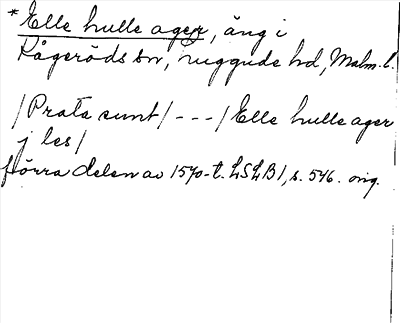 *Elle hulle ager, äng i
Kågeröds sn, Luggude hd, Malm. l.
/Prata sunt/ - - - /Elle hulle ager
j les/
förra delen av 1570-t. LSLB1, s. 546. orig.